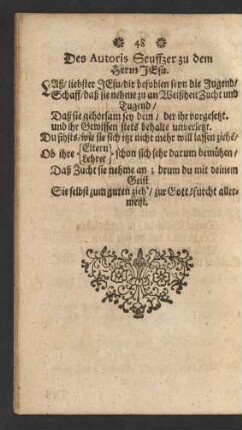 48
Des Autoris Seuffzer zu dem
Herrn JEsu.
LAß/ liebster JEsu/ dir befohlen seyn die Jugend/
Schaff/ daß sie nehme zu an Weißheit Zucht und
Tugend/
Daß sie gehorsam sey dem/ der ihr vorgesetzt.
und ihr Gewissen stets behalte unverletzt.
Du sihsts/ wie sie sich itzt nicht mehr will lassen ziehē/
Ob ihre {Eltern
Lehrer} schon sich sehr darum bemühen/
Daß Zucht sie nehme an; drum du mit deinem
Geist
Sie selbst zum guten zieh'/ zur Gott/furcht aller-
meist.